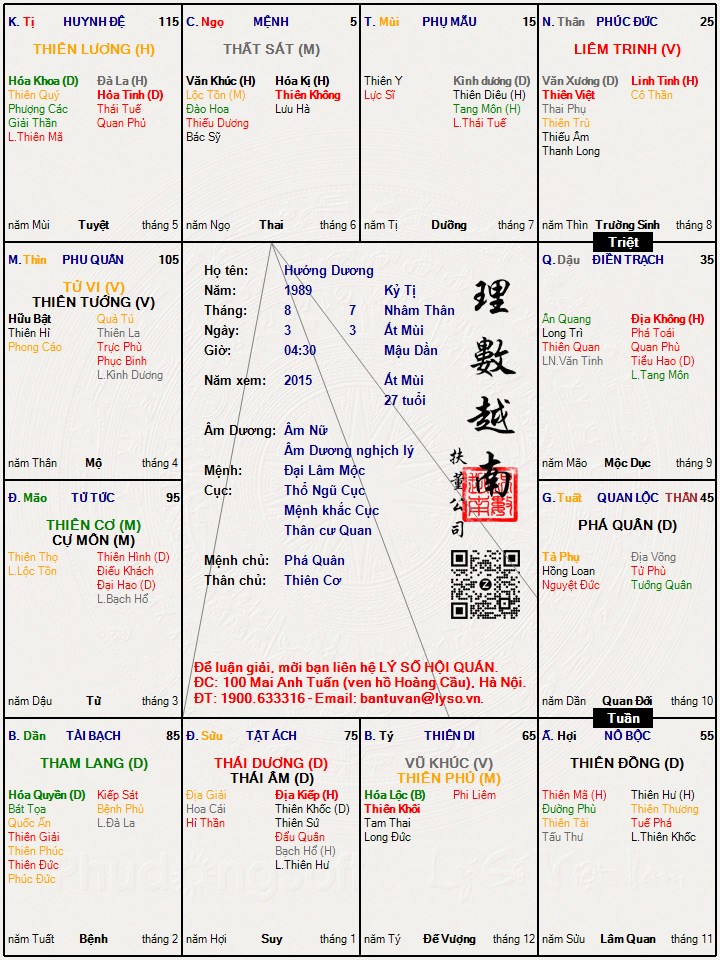 K. Tị HUYNH ĐỆ 115
THIÊN LƯƠNG (H)
Hóa Khoa (D) Đà La (H)
Thiên Quý Hỏa Tinh (D)
Phượng Các Thái Tuế
Giải Thần Quan Phủ
L.Thiên Mã
năm Mùi Tuyệt tháng 5
C. Ngọ MỆNH 5
THẤT SÁT (M)
Văn Khúc (H) Hóa Kị (H)
Lộc Tồn (M) Thiên Không
Đào Hoa Lưu Hà
Thiếu Dương
Bác Sỹ
năm Ngọ Thai tháng 6
T. Mùi PHỤ MẪU 15
Thiên Y Kình dương (D)
Lực Sĩ Thiên Diêu (H)
Tang Môn (H)
L.Thái Tuế
năm Tị Dưỡng tháng 7
N. Thân PHÚC ĐỨC 25
LIÊM TRINH (V)
Văn Xương (D) Linh Tinh (H)
Thiên Việt Cô Thần
Thai Phụ
Thiên Trù
Thiếu Âm
Thanh Long
năm Thìn Trường Sinh tháng 8
Triệt
M. Thìn PHU QUÂN 105
TỬ VI (V)
THIÊN TƯỚNG (V)
Hữu Bật Quả Tú
Thiên Hỉ Thiên La
Phong Cáo Trực Phù
Phục Binh
L.Kình Dương
năm Thân Mộ tháng 4
Họ tên: Hướng Dương
Năm: 1989 Kỷ Tị
Tháng: 8 7 Nhâm Thân
Ngày: 3 3 Ất Mùi
Giờ: 04:30 Mậu Dần
Năm xem: 2015 Ất Mùi
27 tuổi
Âm Dương: Âm Nữ
Âm Dương nghịch lý
Mệnh: Đại Lâm Mộc
Cục: Thổ Ngũ Cục
Mệnh khắc Cục
Thân cư Quan
Mệnh chủ: Phá Quân
Thân chủ: Thiên Cơ
理數越南
扶董公司
Để luận giải, mời bạn liên hệ LÝ SỐ HỘI QUÁN.
ĐC: 100 Mai Anh Tuấn (ven hồ Hoàng Cầu), Hà Nội.
ĐT: 1900.633316 - Email: bantuvan@lyso.vn.
Q. Dậu ĐIỀN TRẠCH 35
Ân Quang Địa Không (H)
Long Trì Phá Toái
Thiên Quan Quan Phù
LN.Văn Tinh Tiểu Hao (D)
L.Tang Môn
năm Mão Mộc Dục tháng 9
Đ. Mão TỬ TỨC 95
THIÊN CƠ (M)
CỰ MÔN (M)
Thiên Thọ Thiên Hình (D)
L.Lộc Tồn Điếu Khách
Đại Hao (D)
L.Bạch Hổ
năm Dậu Tử tháng 3
G. Tuất QUAN LỘC THÂN 45
PHÁ QUÂN (D)
Tả Phụ Địa Võng
Hồng Loan Tử Phù
Nguyệt Đức Tướng Quân
năm Dần Quan Đới tháng 10
Tuần
B. Dần TÀI BẠCH 85
THAM LANG (D)
Hóa Quyền (D) Kiếp Sát
Bát Tọa Bệnh Phù
Quốc Ấn L.Đà La
Thiên Giải
Thiên Phúc
Thiên Đức
Phúc Đức
năm Tuất Bệnh tháng 2
Đ. Sửu TẬT ÁCH 75
THÁI DƯƠNG (D)
THÁI ÂM (D)
Địa Giải Địa Kiếp (H)
Hoa Cái Thiên Khốc (D)
Hỉ Thần Thiên Sứ
Đẩu Quân
Bạch Hổ (H)
L.Thiên Hư
năm Hợi Suy tháng 1
B. Tý THIÊN DI 65
VŨ KHÚC (V)
THIÊN PHỦ (M)
Hóa Lộc (B) Phi Liêm
Thiên Khôi
Tam Thai
Long Đức
năm Tý Đế Vượng tháng 12
Ấ. Hợi NÔ BỘC 55
THIÊN ĐỒNG (D)
Thiên Mã (H) Thiên Hư (H)
Đường Phù Thiên Thương
Thiên Tài Tuế Phá
Tấu Thư L.Thiên Khốc
năm Sửu Lâm Quan tháng 11